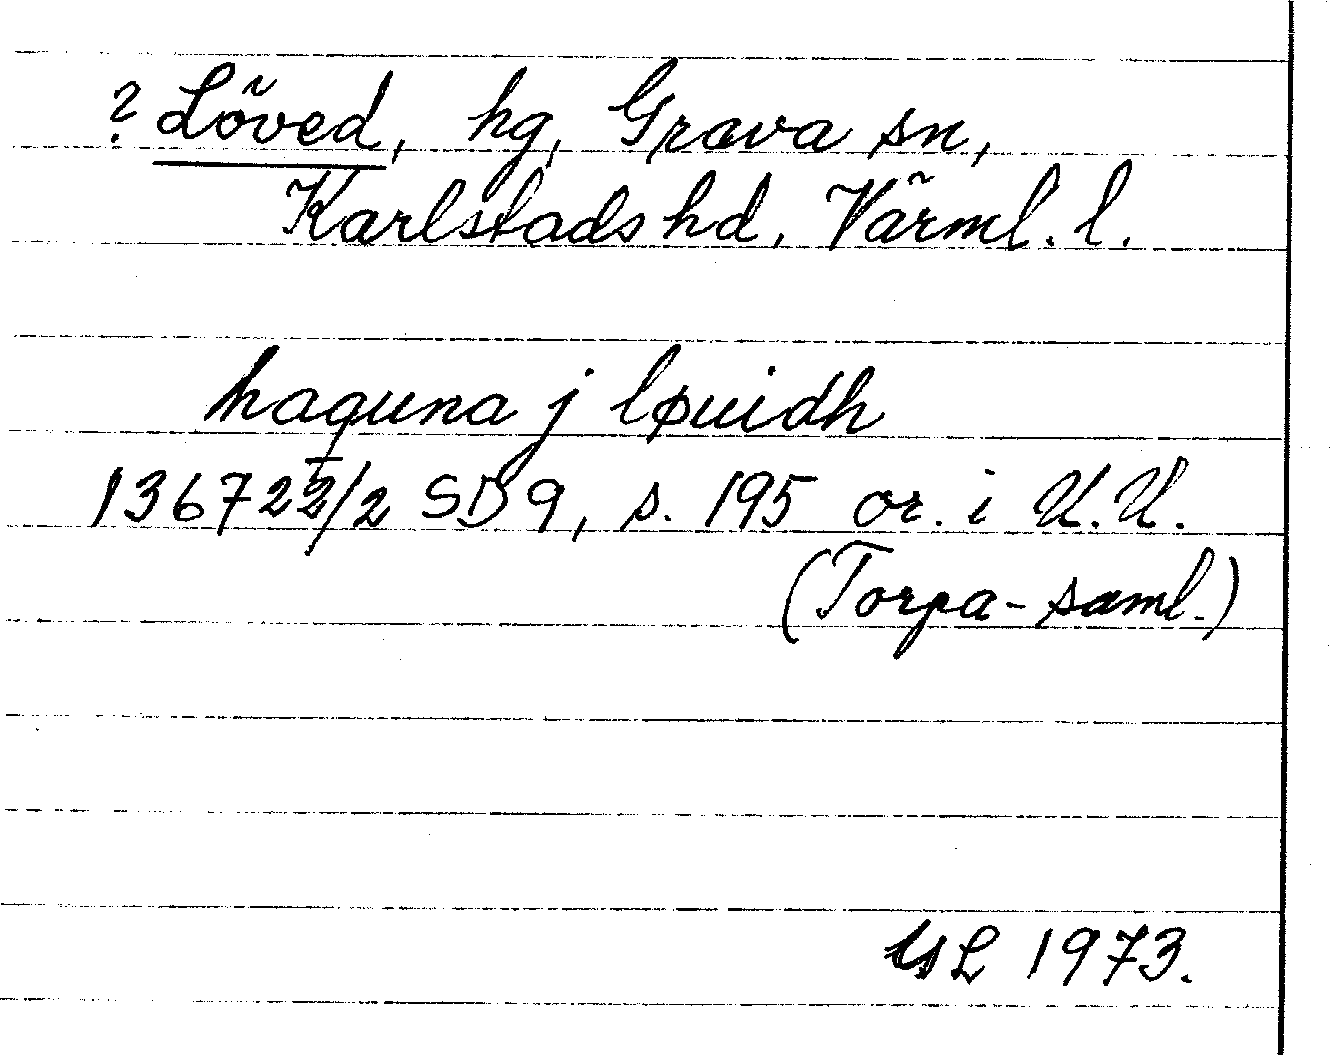 ? Löved, hg, Grava sn,
Karlstads hd, Värml. l.
haguna j løuidh
1367 22/2 SD 9, s. 195 or. i U.U.
(Torpa-saml.)
1973.